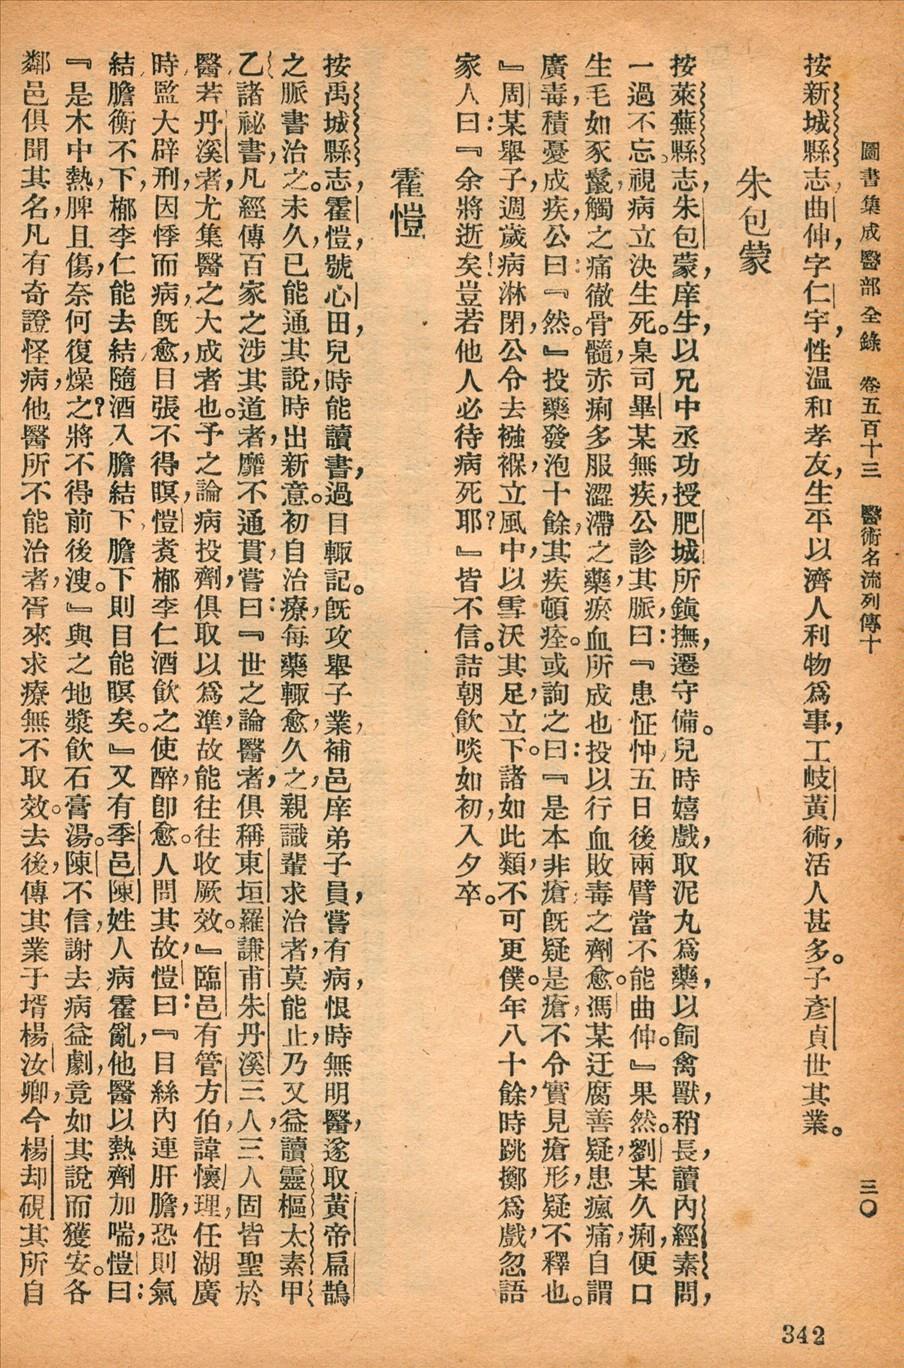 圖書集成醫部全錄　卷五百十三　醫術名流列傳十　三〇
按新城縣志，曲伸，字仁宇，性温和孝友，生平以濟人利物爲事，工岐黃術，活人甚多。子彥貞世其業。
朱包蒙
按萊蕪縣志，朱包蒙，庠生，以兄中丞功授肥城所鎮撫，遷守備。兒時嬉戲，取泥丸爲藥，以飼禽獸，稍長，讀內經素問，
一過不忘，視病立決生死。臬司畢某無疾，公診其脈，曰：『患怔忡，五日後兩臂當不能曲伸。』果然。劉某久痢，便口
生毛如豕鬣，觸之痛徹骨髓，赤痢多服澀滯之藥，瘀血所成也，投以行血敗毒之劑愈。馮某迂腐善疑，患瘋痛，自謂
廣毒，積憂成疾，公曰：『然。』投藥發泡十餘，其疾頓痊。或詢之，曰：『是本非瘡，旣疑是瘡，不令實見瘡形，疑不釋也。
』周某舉子，週歲病淋閉，公令去襁褓，立風中，以雪沃其足，立下。諸如此類，不可更僕。年八十餘，時跳擲爲戲，忽語
家人曰：『余將逝矣！豈若他人必待病死耶？』皆不信。詰朝飲啖如初，入夕卒。
霍愷
按禹城縣志，霍愷，號心田，兒時能讀書，過目輒記。旣攻舉子業，補邑庠弟子員，嘗有病，恨時無明醫，遂取黃帝扁鵲
之脈書治之。未久，已能通其說，時出新意。初自治療，每藥輒愈，久之，親識輩求治者，莫能止，乃又益讀靈樞太素甲
乙諸祕書，凡經傳百家之涉其道者，靡不通貫，嘗曰：『世之論醫者，俱稱東垣羅謙甫朱丹溪三人，三人固皆聖於
醫，若丹溪者，尤集醫之大成者也。予之論病投劑，俱取以爲準，故能往往收厥效。』臨邑有管方伯，諱懷理，任湖廣
時，監大辟刑，因悸而病，旣愈，目張不得瞑，愷煑榔李仁酒飲之使醉，卽愈。人問其故，愷曰：『目絲內連肝膽，恐則氣
結，膽衡不下，榔李仁能去結，隨酒入膽，結下，膽下則目能瞑矣。』又有季邑陳姓人病霍亂，他醫以熱劑加喘，愷曰：
『是木中熱，脾且傷，奈何復燥之？將不得前後溲。』與之地漿飲石膏湯。陳不信，謝去，病益劇，竟如其說而獲安。各
鄰邑俱聞其名，凡有奇證怪病，他醫所不能治者，胥來求療，無不取效。去後，傳其業于壻楊汝卿，今楊却硯其所自
342